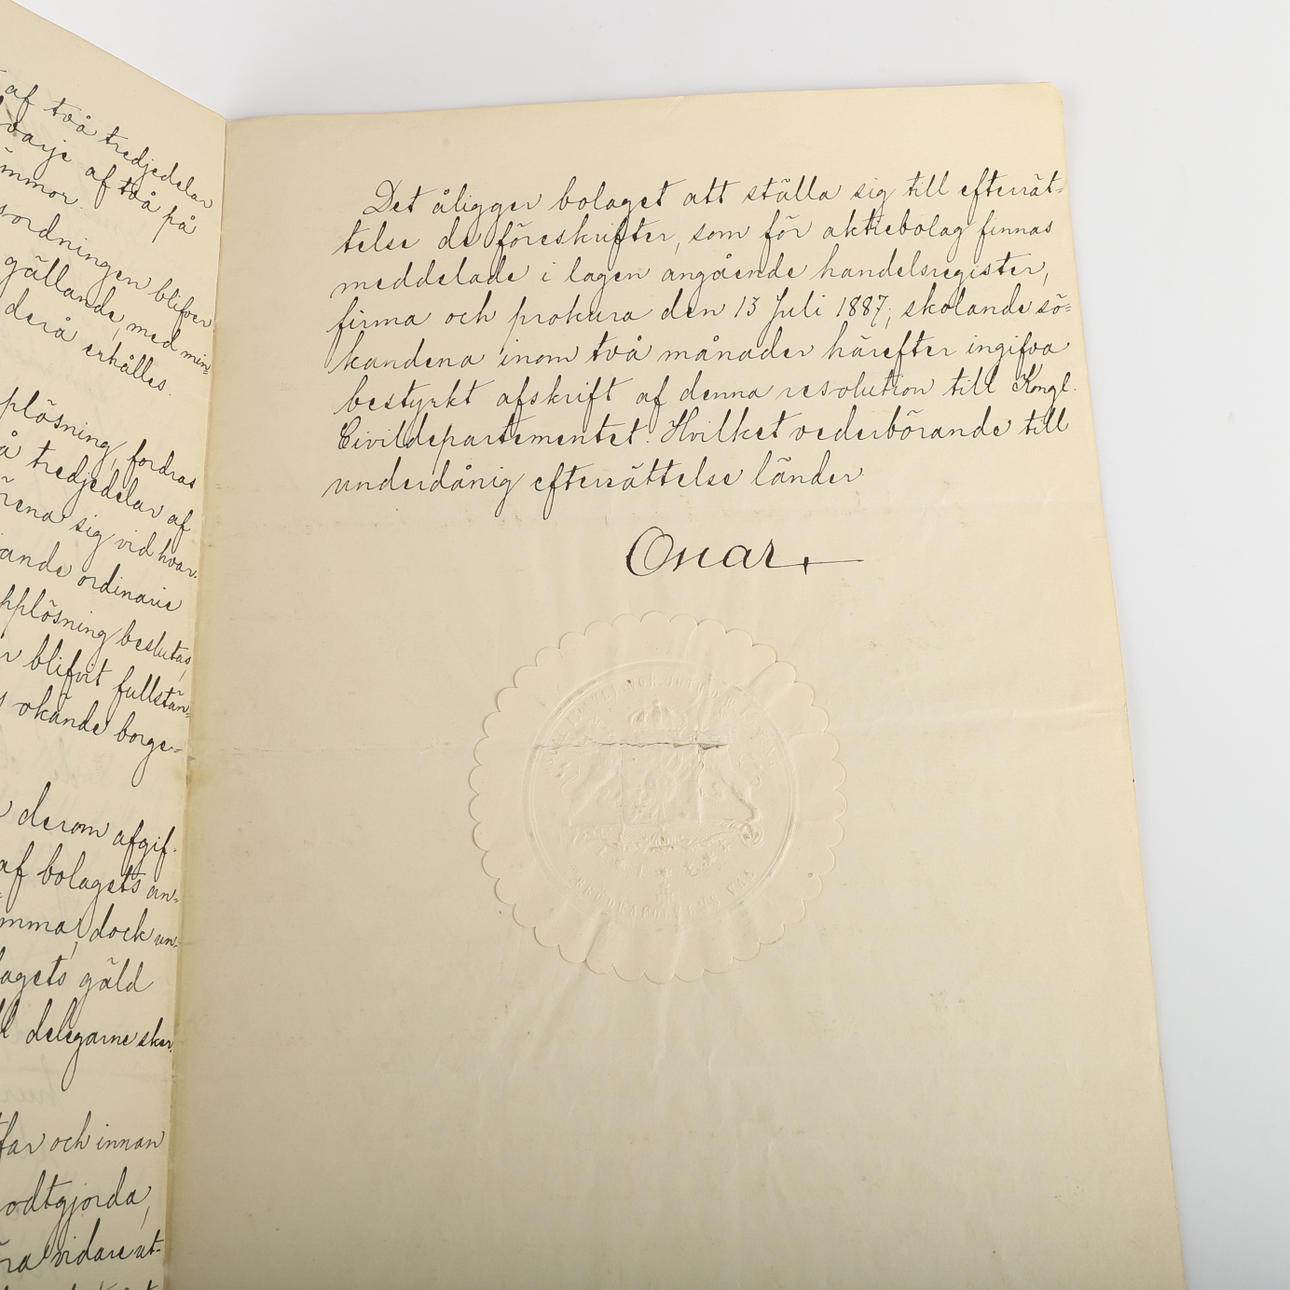 af två tredjedelar
varje af två på
mmor.
sordningen blifver
gällande, med min-
derå erhålles.
plösning fordras
å tredjedelar af
rena sig vid hvar-
ande ordinarie
pplösning beslutas,
r blifvit fullstän-
s okände borge-
derom afgif-
af bolagets an-
mma, dock un-
lagets gäld
l delegarne sker.
far och innan
odtgjorda,
ra vidare ut-
Det åligger bolaget att ställa sig till efterrät-
telse de föreskrifter, som för aktiebolag finnas
meddelade i lagen angående handelsregister,
firma och prokura den 13 Juli 1887; skolande sö-
kandena inom två månader härefter ingifva
bestyrkt afskrift af denna resolution till Kongl.
Civildepartementet. Hvilket vederbörande till
underdånig efterrättelse länder
Oscar